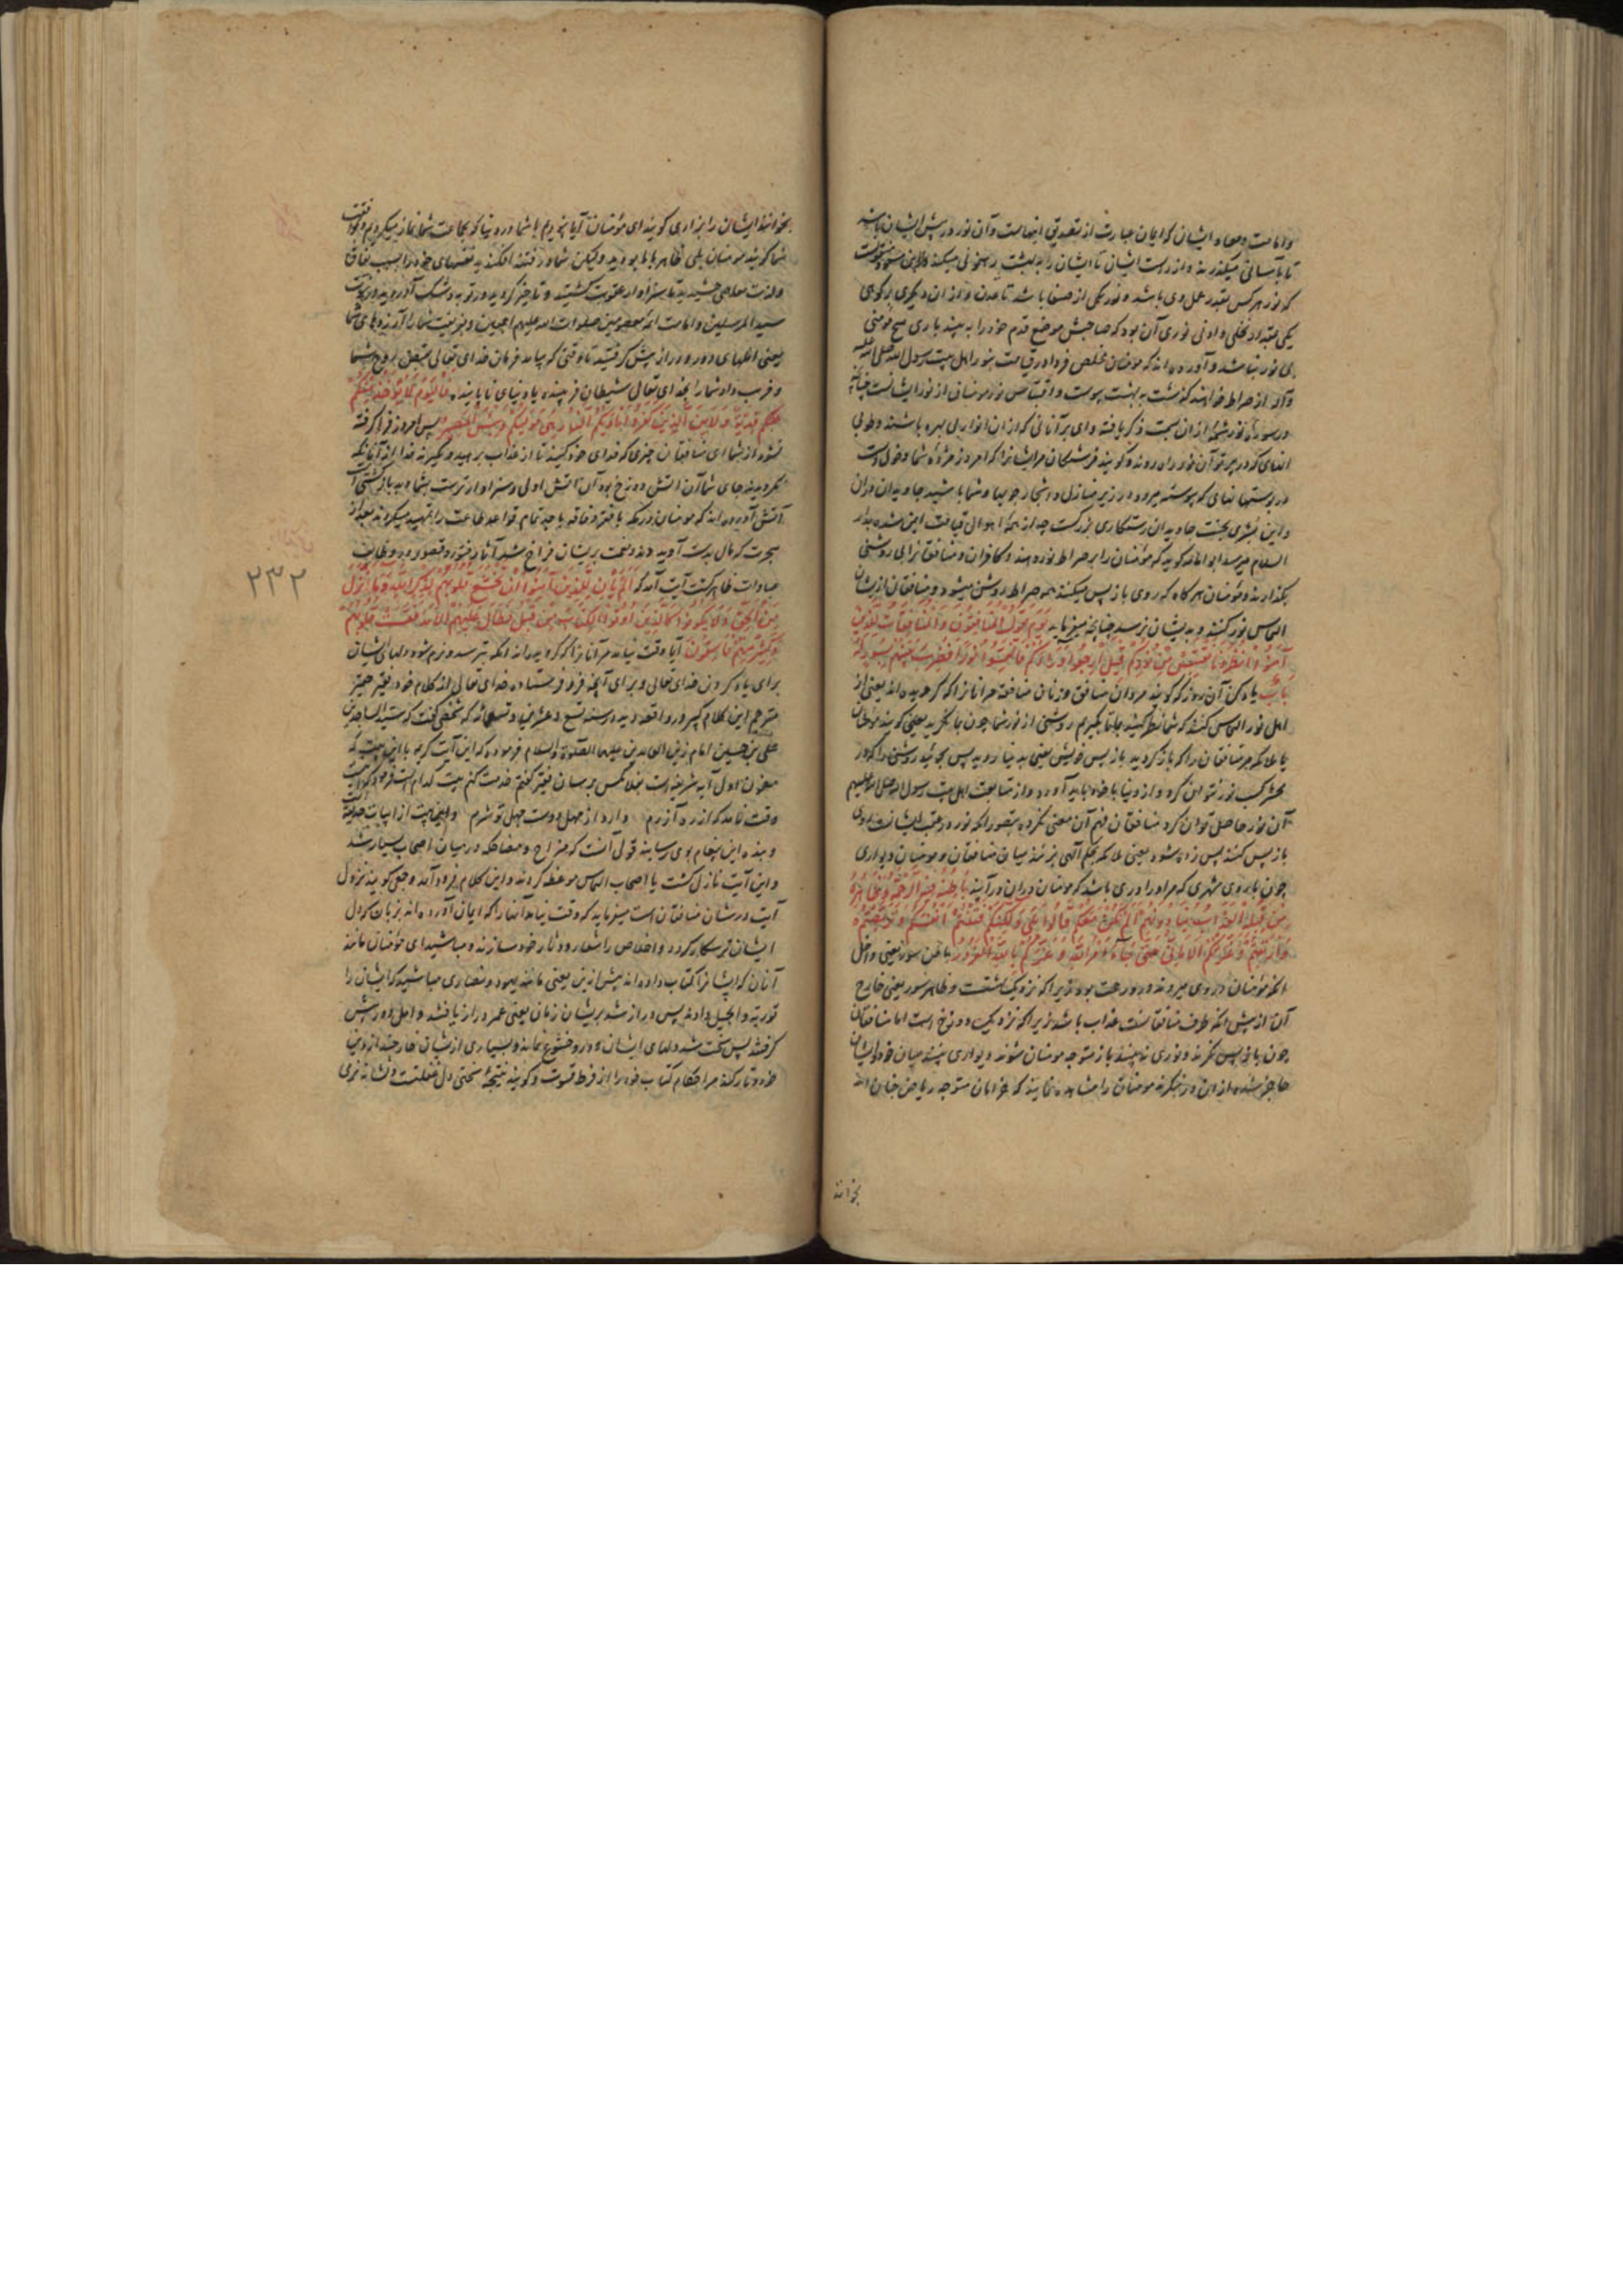 وامامت و معاد ایشان که ایمان عبارت از تصدیق اینهاست و آن نور در پیش ایشان باشد
تا بآسانی میگذرند و از راست ایشان تا ایشان را به بهشت رهنمونی میکند
که نور هر کس بقدر عمل وی باشد و نور یکی از صنعا باشد تا عدن و از آن دیگری بر کوهی
یکی بمقدار نخلی و ادنی نوری آن بود که صاحبش موضع قدم خود را به بیند باری هیچ مومنی
بی نور نباشد و آورده اند که مومنان مخلص فردا در قیامت بنور اهل بیت رسول الله صلی الله علیه
وآله از صراط خواهند گذشت به بهشت پیوست و اقتباس نور مومنانی از نور ایشانست چنانچه
در سوره نور شمهٔ از آن سمت ذکر یافته وای بر آنانی که از آن انوار بی بهره باشند و طوبی
آنهای که در پرتو آن نور راه روند و گویند فرشتگان مر ایشانرا که امروز مژدهٔ شما دخول است
در بوستانهای که پیوسته میرود در زیر منازل و اشجار جویها و شما باشید جاویدان در آن
و این بشری بجنت جاویدان رستگاری بزرگست چه از همهٔ اهوال قیامت ایمن شده بدار
السلام میرسد ابو امامه گوید که مؤمنان را بر صراط نور دهند و کافران و منافقانرا بی روشنی
بگذارند و مؤمنان هر گاه که روی باز پس میکنند همه صراط روشن میشود و منافقان از ایشان
التماس نور کنند و بدیشان نرسد چنانچه میفرماید یَوْمَ یَقُولُ الْمُنَافِقُونَ وَالْمُنَافِقَاتُ لِلَّذِینَ
آمَنُوا انْظُرُونَا نَقْتَبِسْ مِنْ نُورِکُمْ قِیلَ ارْجِعُوا وَرَاءَکُمْ فَالْتَمِسُوا نُورًا فَضُرِبَ بَیْنَهُمْ بِسُورٍ لَهُ
بَابٌ یاد کن آن روز که گویند مردان منافق و زنان منافقه مر آنانرا که گرویده اند یعنی از
اهل نور التماس کنند که شما نظر کنید بما تا بگیریم روشنی از نور شما چون بما نگرید یعنی گویند مومنان
یا ملائکه مر منافقان را که باز گردید باز پس خویش یعنی به دنیا روید پس بجوئید روشنی را که در
محشر کسب نور نتوان کرد و از دنیا با خود باید آورد و از متابعت اهل بیت رسول الله صلی الله علیهم
آن نور حاصل توان کرد منافقان فهم آن معنی نکرده بتصور آنکه نور در عقب ایشانست روی
باز پس کنند پس زده شود یعنی ملائکه بحکم الهی بزنند میان منافقان و مومنان دیواری
چون باروی شهری که مر او را دری باشد که مومنان در آن در آیند بَاطِنُهُ فِیهِ الرَّحْمَةُ وَظَاهِرُهُ
مِنْ قِبَلِهِ الْعَذَابُ یُنَادُونَهُمْ أَلَمْ نَکُنْ مَعَکُمْ قَالُوا بَلَى وَلَکِنَّکُمْ فَتَنْتُمْ أَنْفُسَکُمْ وَتَرَبَّصْتُمْ
وَارْتَبْتُمْ وَغَرَّتْکُمُ الْأَمَانِیُّ حَتَّى جَاءَ أَمْرُ اللَّهِ وَغَرَّکُمْ بِاللَّهِ الْغَرُورُ باطن سور یعنی داخل
آنکه مؤمنان در وی میروند درو رحمت بود زیرا که نزدیک بهشتست و ظاهر سور یعنی خارج
آن از پیش آنکه طرف منافقانست عذاب باشد زیرا که نزدیک دوزخ است اما منافقان
چون باز پس نگرند و نوری نه بینند باز متوجه مومنان شوند دیواری بینند میان خود و ایشان
حاجز شده از آن در بنگرند مومنان را مشاهده نمایند که خرامان متوجه ریاض جنان اند
بخوانند
بخوانند ایشان را بزاری گویند ای مؤمنان آیا نبودیم با شما در دنیا که بجماعت شما نماز میکردیم
شما گویند مومنان بلی بظاهر با ما بودید ولیکن شما در فتنه افکندید نفسهای خود را بسبب نفاق
ولذت معاصی چشیدید تا سزاوار عقوبت گشتید و تاخیر کردید در توبه و شک آوردید در نبوت
سید المرسلین و امامت ائمه معصومین صلوات الله علیهم اجمعین و بفریفت شما را آرزوهای شما
یعنی املهای دور و دراز پیش گرفتید تا وقتی که بیامد فرمان خدای تعالی بقبض روح شما
و فریب داد شما را بخدای تعالی شیطان فریبنده یا دنیای ناپاینده فَالْیَوْمَ لَا یُؤْخَذُ مِنْکُمْ
فِدْیَةٌ وَلَا مِنَ الَّذِینَ کَفَرُوا مَأْوَاکُمُ النَّارُ هِیَ مَوْلَاکُمْ وَبِئْسَ الْمَصِیرُ پس امروز فرا گرفته
نشود از شما ای منافقان چیزی که فدای خود کنید تا از عذاب برهید و نگیرند فدا از آنانکه
نگرویدند جای شما آن آتش دوزخ بود آن آتش اولی و سزاوارترست بشما و بد بازگشتی است
آتش آورده اند که مومنان در مکه با فقر و فاقه بجد تمام قواعد طاعت را تمهید میکردند بعد از
هجرت که مال بدست آوردند و نعمت بریشان فراخ شد آثار فتور و قصور در وظایف
عبادات ظاهر گشت آیت آمد که أَلَمْ یَأْنِ لِلَّذِینَ آمَنُوا أَنْ تَخْشَعَ قُلُوبُهُمْ لِذِکْرِ اللَّهِ وَمَا نَزَلَ
مِنَ الْحَقِّ وَلَا یَکُونُوا کَالَّذِینَ أُوتُوا الْکِتَابَ مِنْ قَبْلُ فَطَالَ عَلَیْهِمُ الْأَمَدُ فَقَسَتْ قُلُوبُهُمْ
وَکَثِیرٌ مِنْهُمْ فَاسِقُونَ آیا وقت نیامد مر آنانرا که گرویده اند آنکه بترسد و نرم شود دلهای ایشان
برای یاد کردن خدای تعالی و برای آنچه فرو فرستاده خدای تعالی از کلام خود فقیر حقیر
مترجم این کلام کبیر در واقعه دید در سنه تسع و عشرین و تسعمائه که شخصی گفت که سید الساجدین
علی بن حسین امام زین العابدین علیهما الصلوة والسلام فرموده که این آیت کریمه با این بیت که
مضمون اول آیه شریفه است بفلان کس برسان فقیر گفتم خدمت کنم بیت کدام است فرمود که بیت
وقت نامد که از ره آزرم   دارد از جهل دوست جهل تو شرم
و بنده این پیغام بوی رسانید قولی آنست که مزاح و مضاحکه در میان اصحاب بسیار شد
و این آیت نازل گشت یا اصحاب التماس موعظه کردند و این کلام فرود آمد و جمعی گویند نزول
آیت در شان منافقان است میفرماید که وقت نیامد آنها را که ایمان آورده اند بزبان که دل
ایشان ترسکار گردد و اخلاص را شعار و دثار خود سازند و مباشید ای مؤمنان مانند
آنان که ایشانرا کتاب داده اند پیش ازین یعنی مانند یهود و نصاری مباشید که ایشان را
توریة و انجیل دادند پس دراز شد بریشان زمان یعنی عمر دراز یافتند و امل دور پیش
گرفتند پس سخت شد دلهای ایشان و درو خشوع نماند و بسیاری از ایشان خارجند از دین
خود و تارکند مر احکام کتاب خود را از فرط قسوت و گویند نتیجهٔ سختی دل غفلتست و نشانه نرمی
۲۳۲